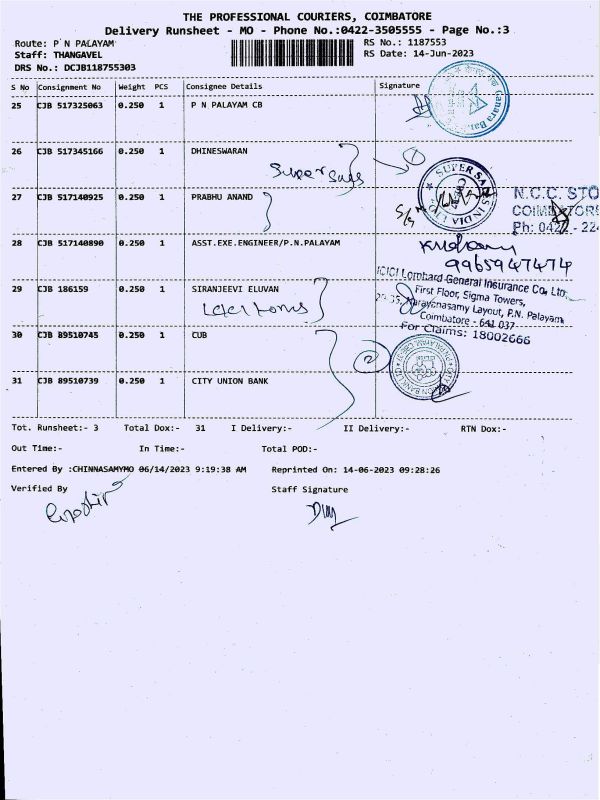 THE PROFESSIONAL COURIERS, COIMBATORE
Delivery Runsheet - MO - Phone No.:0422-3505555 - Page No.:3
Route: P N PALAYAM
Staff: THANGAVEL
DRS No.: DCJB118755303
RS No.: 1187553
RS Date: 14-Jun-2023
S No Consignment No Weight PCS Consignee Details Signature
25 CJB 517325063 0.250 1 P N PALAYAM CB
Canara Ban
26 CJB 517345166 0.250 1 DHINESWARAN
1
Super Sales
SUPER SALES INDIA LTD
27 CJB 517140925 0.250 1 PRABHU ANAND
N.C.C. STO
COIMBATORE
Ph: 0422 - 224
28 CJB 517140890 0.250 1 ASST.EXE.ENGINEER/P.N.PALAYAM
9965947474
29 CJB 186159 0.250 1 SIRANJEEVI ELUVAN
ICICI Lombard General Insurance Co, Ltd.
First Floor, Sigma Towers,
Narayanasamy Layout, P.N. Palayam
Coimbatore - 641 037
For Claims: 18002666
30 CJB 89510745 0.250 1 CUB
2
31 CJB 89510739 0.250 1 CITY UNION BANK
Tot. Runsheet:- 3 Total Dox:- 31 I Delivery:- II Delivery:- RTN Dox:-
Out Time:- In Time:- Total POD:-
Entered By :CHINNASAMYMO 06/14/2023 9:19:38 AM Reprinted On: 14-06-2023 09:28:26
Verified By Staff Signature